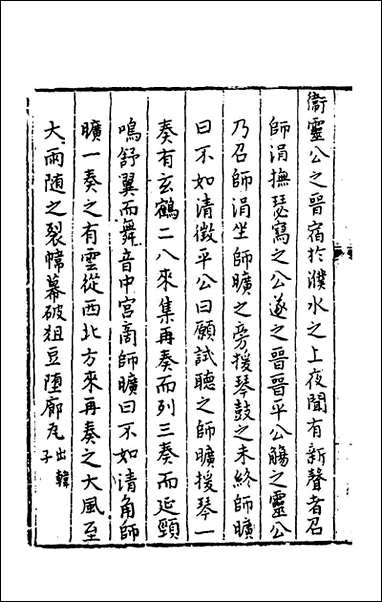 衞靈公之晉宿於濮水之上夜聞有新聲者召
師涓撫瑟寫之公遂之晉晉平公觴之靈公
乃召師涓坐師曠之旁援琴鼓之未終師曠
曰不如清徵平公曰願試聽之師曠援琴一
奏有玄鶴二八來集再奏而列三奏而延頸
鳴舒翼而舞音中宫商師曠曰不如清角師
曠一奏之有雲從西北方來再奏之大風至
大雨随之裂幃幕破狙豆堕廊瓦出韓子